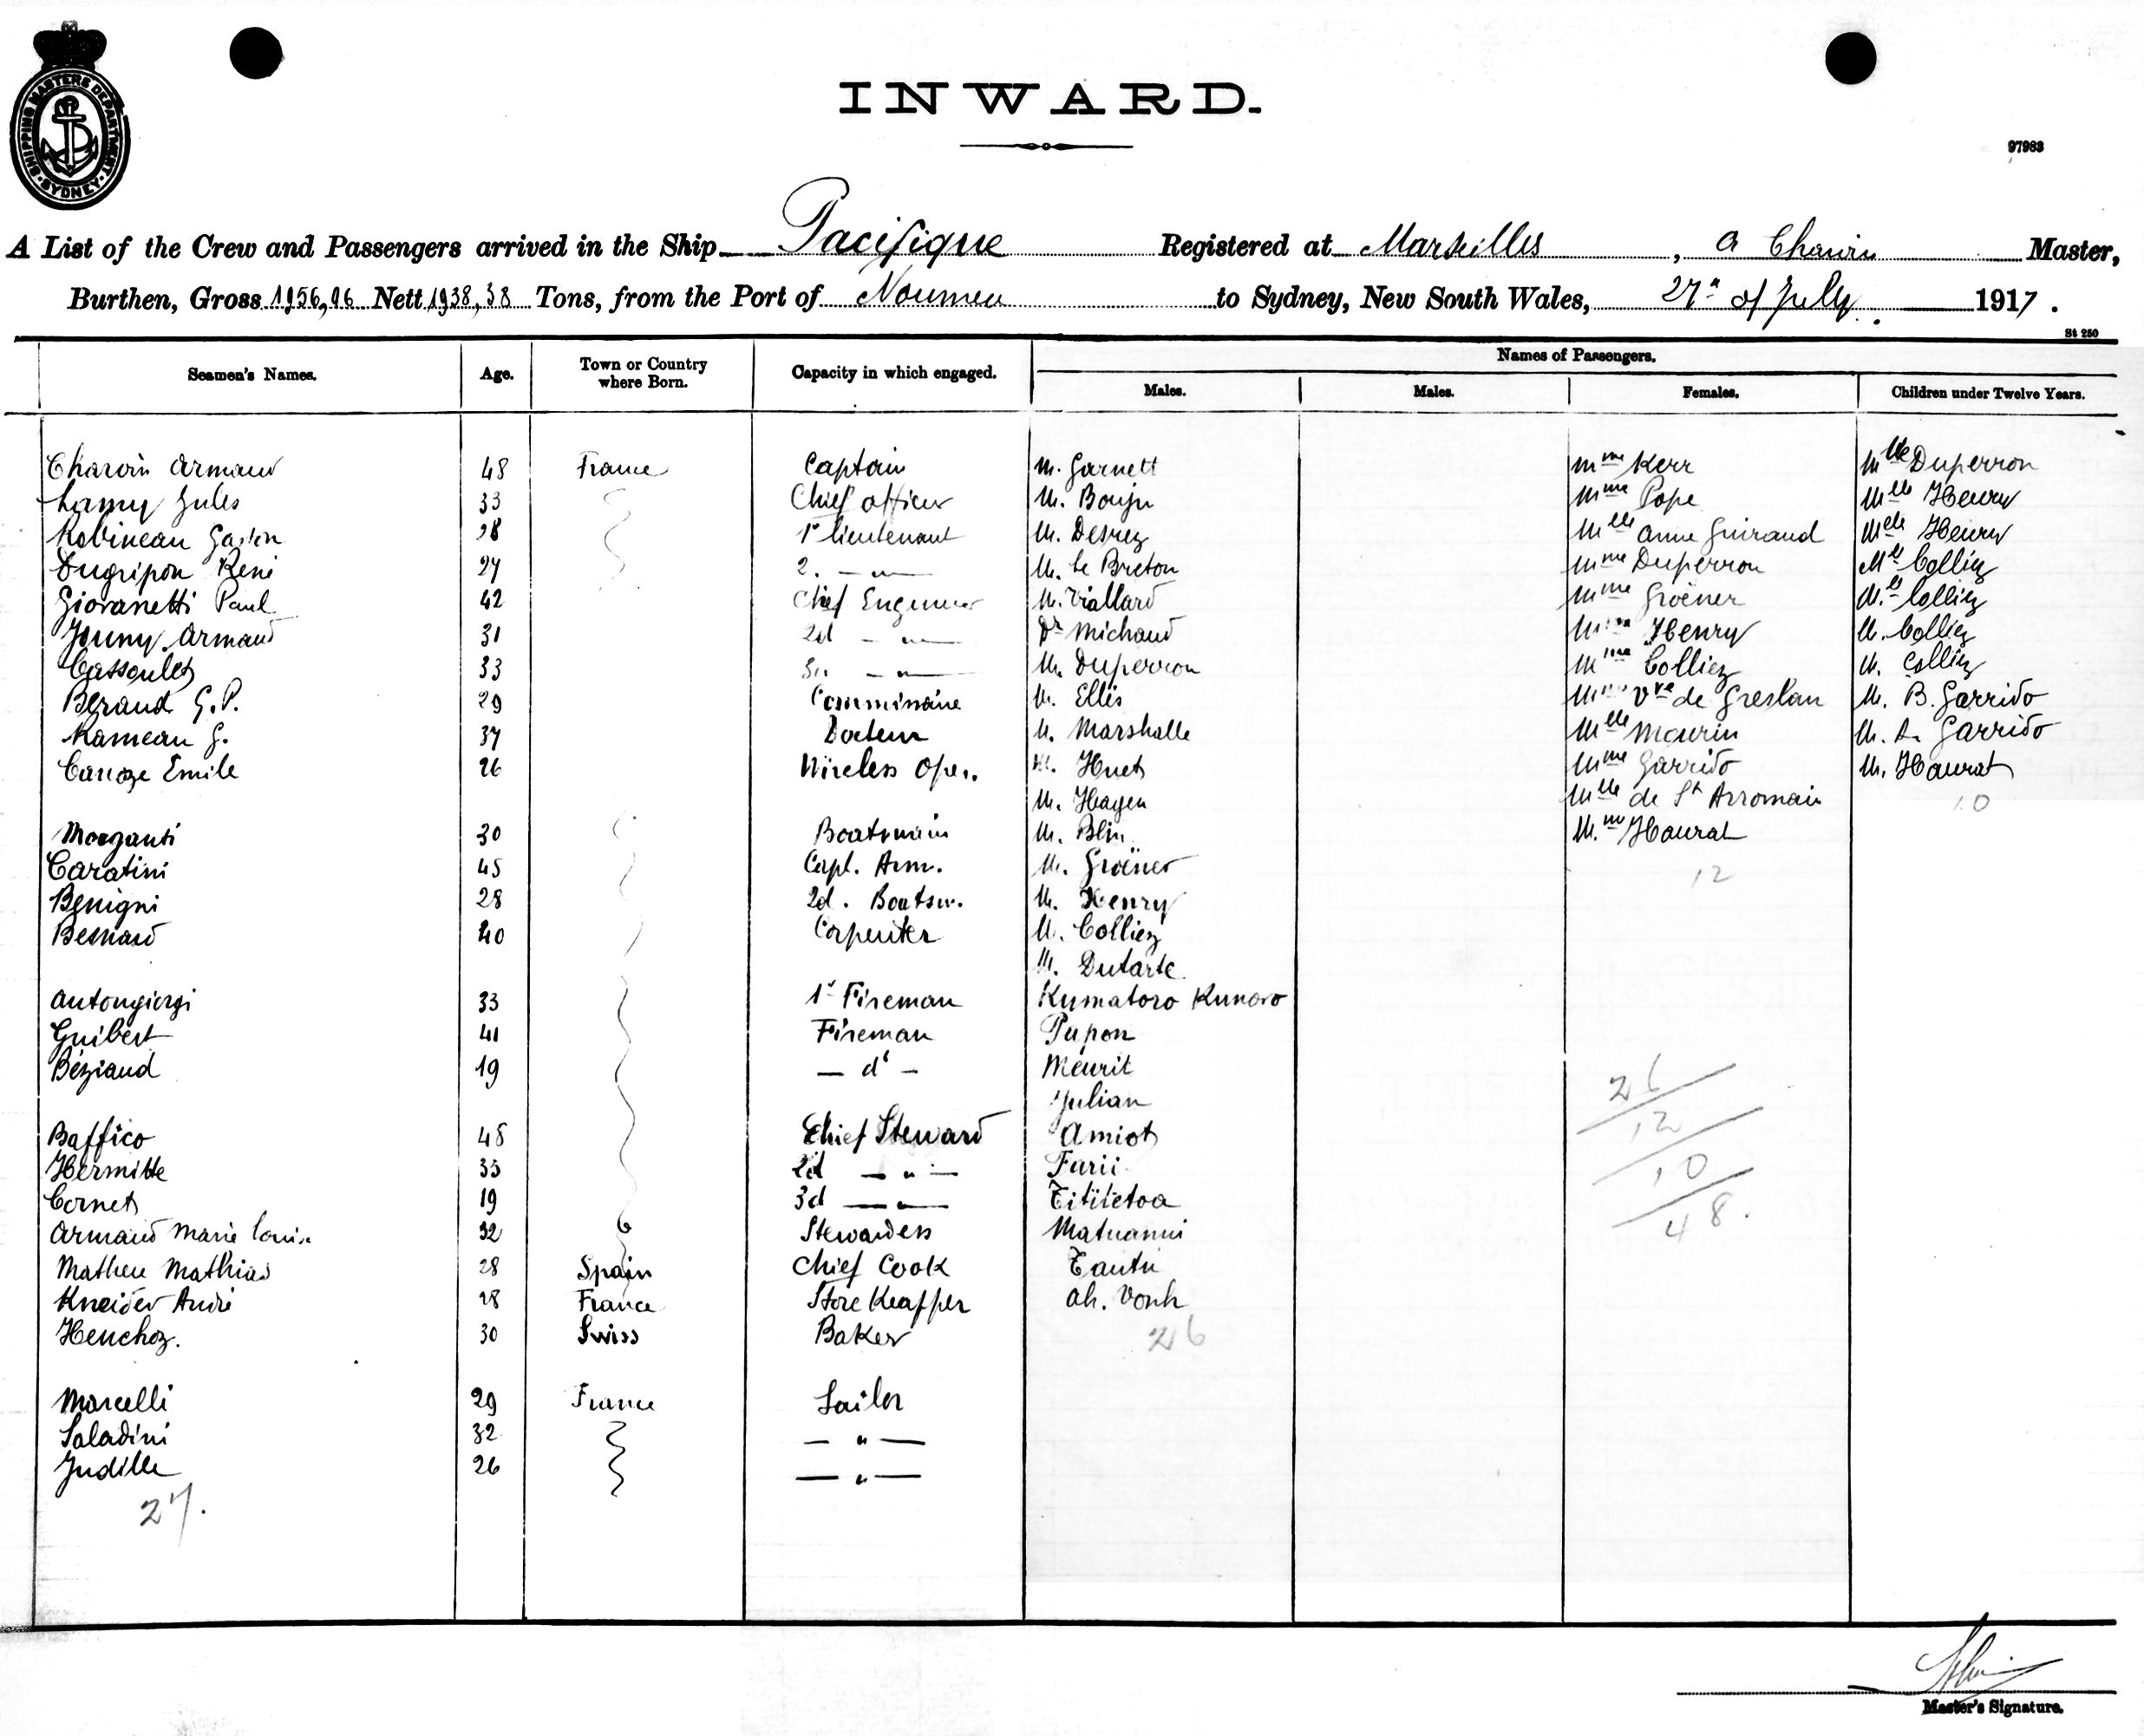 SHIPPING MASTERS DEPARTMENT SYDNEY
INWARD.
97983
A List of the Crew and Passengers arrived in the Ship Pacifique Registered at Marseilles, A Charvin Master,
Burthen, Gross 1956,96 Nett 1938,38 Tons, from the Port of Noumea to Sydney, New South Wales, 27th of July 1917.
St 250
Seamen's Names. Age. Town or Country where Born. Capacity in which engaged. Names of Passengers.
Males. Males. Females. Children under Twelve Years.
Charvin Armand 48 France Captain M. Garnett Mme Kerr Mlle Duperron
Lamy Jules 33 Chief officer M. Bouju Mme Pope Mlle Henry
Robineau Gaston 28 1r lieutenant M. Desrez Mlle Anne Guiraud Mlle Henry
Dugripon René 27 2. — " — M. Le Breton Mme Duperron Mlle Colliez
Giovanetti Paul 42 Chief Engineer M. Viallard Mme Groëner Mlle Colliez
Jouny Armand 31 2d — " — Dr Michaud Mme Henry M. Colliez
Cassoulet 33 3d — " — M. Duperron Mme Colliez M. Colliez
Beraud G. P. 29 Commissaire M. Ellis Mme Vve de Greslan M. B. Garrido
Rameau G. 37 Docteur M. Marshalle Mlle Mourin M. A. Garrido
Canoze Emile 26 Wireless Oper. M. Huet Mme Garrido M. Haurat
M. Hagen Mlle de St Arromain 10
Morganti 30 Boatswain M. Blin Mme Haurat
Caratini 45 Capt. Arm. M. Groëner 12
Benigni 28 2d. Boatsw. M. Henry
Besnard 40 Carpenter M. Colliez
M. Dutarte
Antongiorgi 33 1r Fireman Kumatoro Kunoro
Guibert 41 Fireman Pupon
Béziaud 19 — do — Meurit
Julian
Baffico 48 Chief Steward Amiot
Hermitte 33 2d — " — Farii
Cornet 19 3d — " — Tititetoa
Armand Marie Louise 32 Stewardess Matuanui
Matheu Mathias 28 Spain Chief Cook Tautu
Kneider André 28 France Store Keapper Ah. Vonh
Henchoz. 30 Swiss Baker 26
Marcelli 29 France Sailor
Saladini 32 — " —
Judille 26 — " —
27.
26
12
10
48.
Master's Signature.